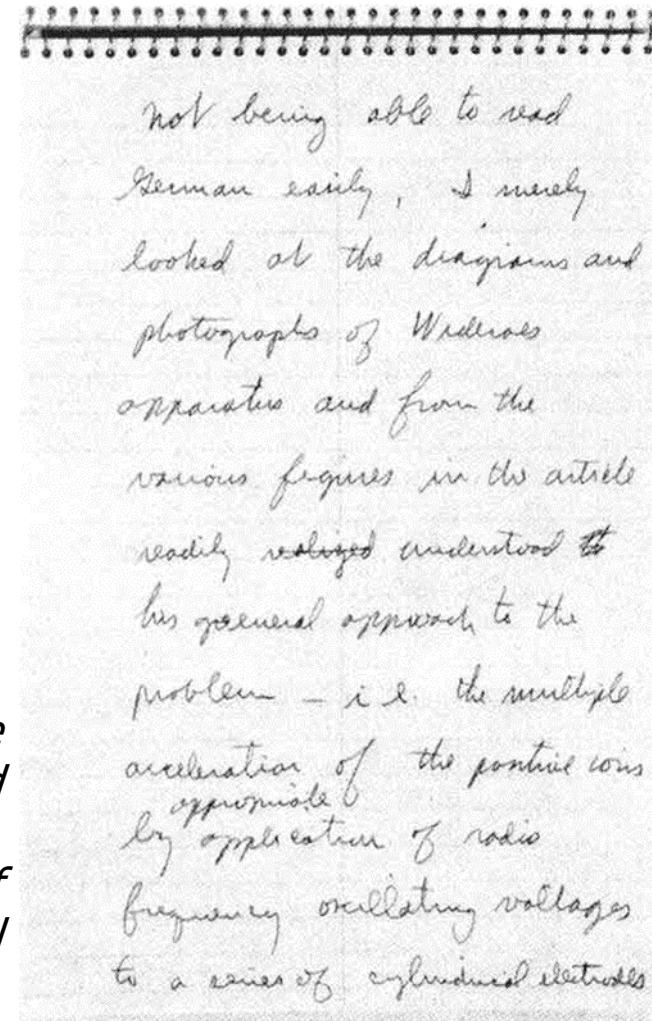 not being able to read
German easily, I merely
looked at the diagrams and
photographs of Wideroes
apparatus and from the
various figures in the article
readily realized understood
his general approach to the
problem – i e. the multiple
acceleration of the positive ions
appropriate
by application of radio
frequency oscillating voltages
to a series of cylindrical electrodes